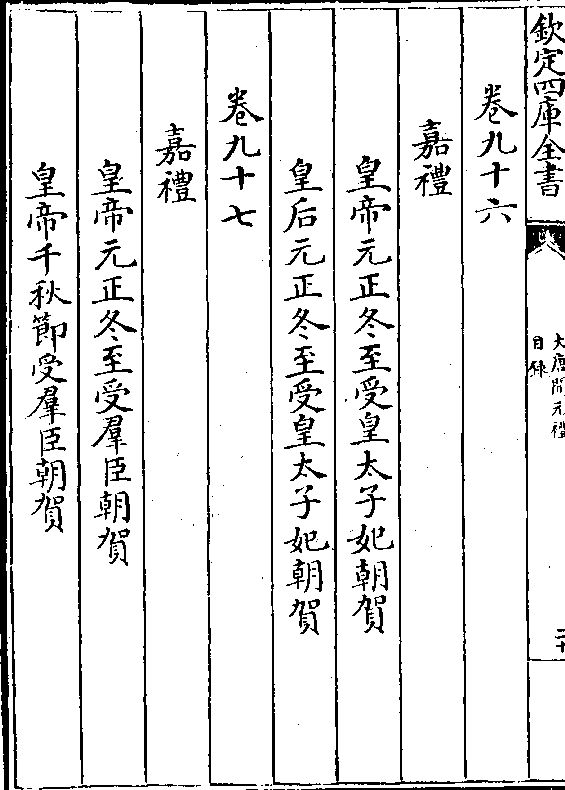 欽定四庫全書
大唐開元禮
目錄
二十
卷九十六
嘉禮
皇帝元正冬至受皇太子妃朝賀
皇后元正冬至受皇太子妃朝賀
卷九十七
嘉禮
皇帝元正冬至受羣臣朝賀
皇帝千秋節受羣臣朝賀